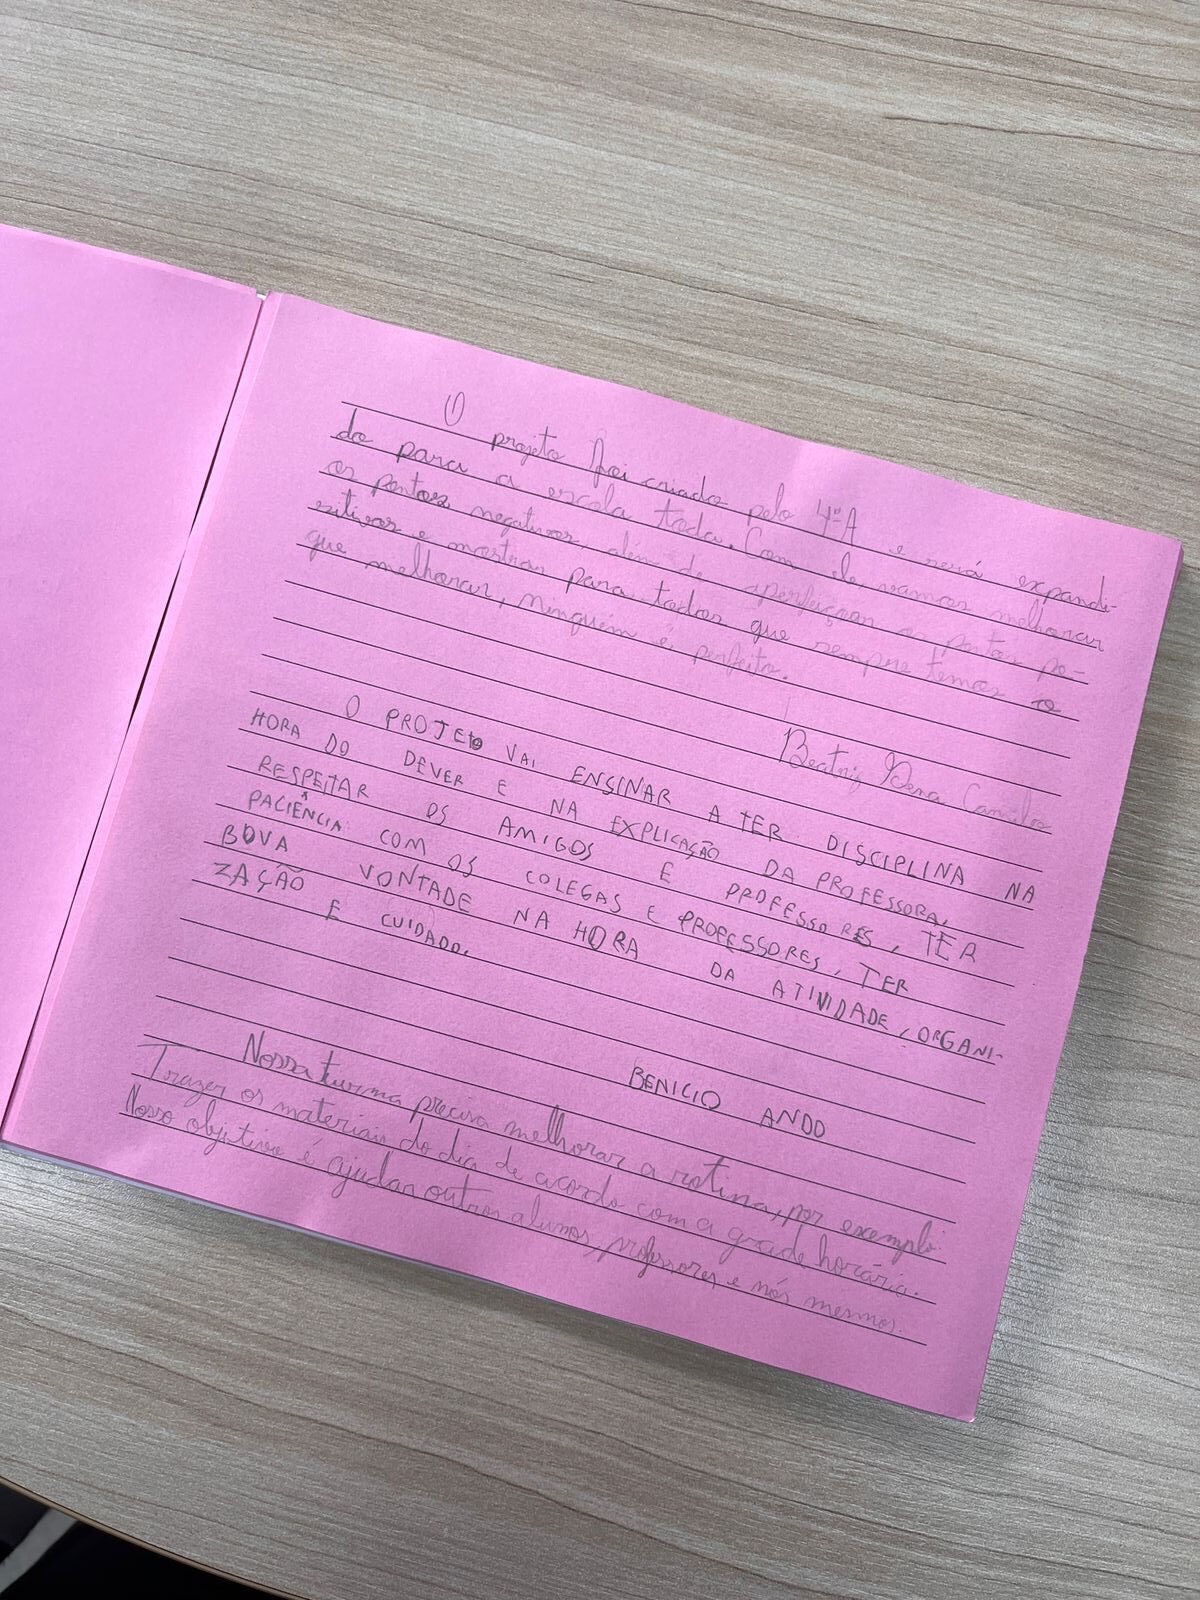 O projeto foi criado pelo 4ºA e será expandi-
do para a escola toda. Com ele, vamos melhorar
os pontos negativos, além de aperfeiçoar os pontos po-
sitivos e mostrar para todos que sempre temos o
que melhorar, ninguém é perfeito.
Beatriz Camilo
O PROJETO VAI ENSINAR A TER DISCIPLINA NA
HORA DO DEVER E NA EXPLICAÇÃO DA PROFESSORA,
RESPEITAR OS AMIGOS E PROFESSORES, TER
PACIÊNCIA COM OS COLEGAS E PROFESSORES, TER
BOVA VONTADE NA HORA DA ATIVIDADE, ORGANI-
ZAÇÃO E CUIDADO.
BENICIO ANDO
Nossa turma precisa melhorar a rotina, por exemplo:
Trazer os materiais do dia de acordo com a grade horária.
Nosso objetivo é ajudar outros alunos, professores e nós mesmos.